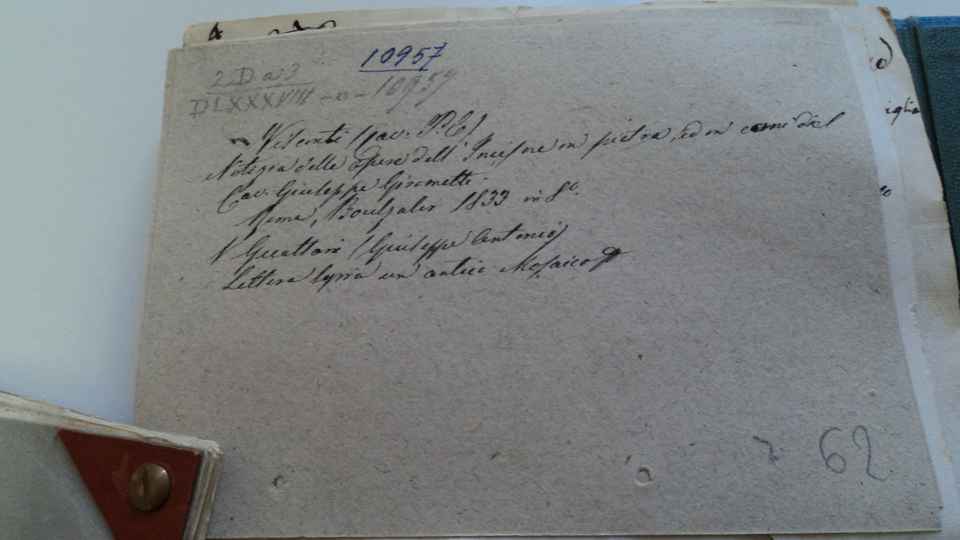 10957
2 D a 3
DLXXXVIII - a - 10959
Visconti (Cav. P. E.)
Notizia delle opere dell' Incisore in pietra, ed in conj del
Cav. Giuseppe Girometti.
Roma, 1833 in 8º.
Guattani (Giuseppe Antonio)
Lettera sopra un antico Mosaico
62